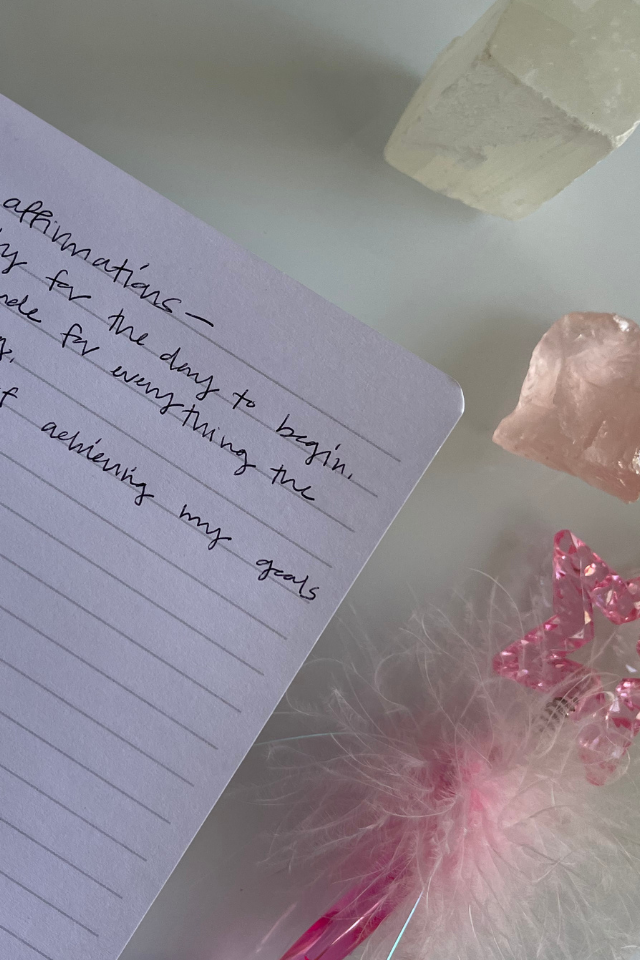 affirmations —
for the day to begin.
for everything the
achieving my goals